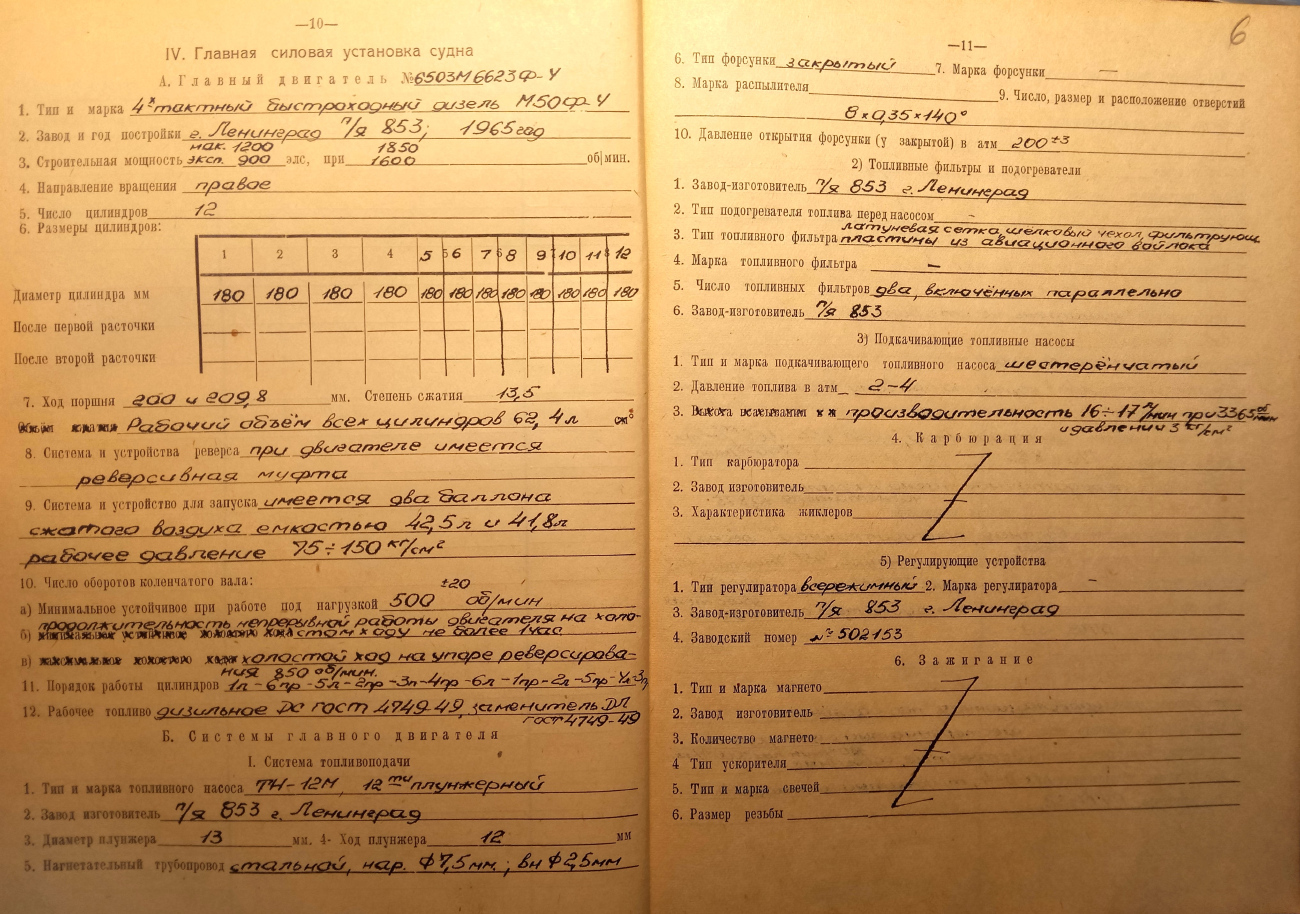 —10—
IV. Главная силовая установка судна
А. Главный двигатель №6503М6623Ф-У
1. Тип и марка 4х тактный быстроходный дизель М50Ф-У
2. Завод и год постройки г. Ленинград п/я 853; 1965 год
мак. 1200 1850
3. Строительная мощность эксп. 900 элс, при 1600 об|мин.
4. Направление вращения правое
5. Число цилиндров 12
6. Размеры цилиндров:
1 2 3 4 5 6 7 8 9 10 11 12
Диаметр цилиндра мм 180 180 180 180 180 180 180 180 180 180 180 180
После первой расточки
После второй расточки
7. Ход поршня 200 и 209,8 мм. Степень сжатия 13,5
Рабочий объём всех цилиндров 62,4 л
8. Система и устройства реверса при двигателе имеется
реверсивная муфта
9. Система и устройство для запуска имеется два баллона
сжатого воздуха емкостью 42,5л и 41,8л
рабочее давление 75÷150 кг/см²
10. Число оборотов коленчатого вала:
а) Минимальное устойчивое при работе под нагрузкой 500 ±20 об/мин
продолжительность непрерывной работы двигателя на холо-
б) стом ходу не более 1 часа
в) холостой ход на упоре реверсирова-
ния 850 об/мин.
11. Порядок работы цилиндров 1л-6пр-5л-2пр-3л-4пр-6л-1пр-2л-5пр-4л-3п
12. Рабочее топливо дизильное ДС ГОСТ 4749-49, заменитель ДЛ
ГОСТ 4749-49
Б. Системы главного двигателя
I. Система топливоподачи
1. Тип и марка топливного насоса ТН-12М, 12ти плунжерный
2. Завод изготовитель п/я 853 г. Ленинград
3. Диаметр плунжера 13 мм. 4- Ход плунжера 12 мм
5. Нагнетательный трубопровод стальной, нар. Ф7,5мм.; вн Ф2,5мм
6
—11—
6. Тип форсунки закрытый 7. Марка форсунки —
8. Марка распылителя
9. Число, размер и расположение отверстий
8×0,35×140°
10. Давление открытия форсунки (у закрытой) в атм 200 ±3
2) Топливные фильтры и подогреватели
1. Завод-изготовитель п/я 853 г. Ленинград
2. Тип подогревателя топлива перед насосом –
латуневая сетка, шёлковый чехол, фильтрующ.
3. Тип топливного фильтра пластины из авиационного войлока
4. Марка топливного фильтра –
5. Число топливных фильтров два, включённых параллельно
6. Завод-изготовитель п/я 853
3) Подкачивающие топливные насосы
1. Тип и марка подкачивающего топливного насоса шестерёнчатый
2. Давление топлива в атм 2-4
3. производительность 16÷17 л/мин при 3365 об/мин
и давлении 3 кг/см²
4. Карбюрация
1. Тип карбюратора
2. Завод изготовитель
3. Характеристика жиклеров
5) Регулирующие устройства
1. Тип регулиратора всережимный 2. Марка регулиратора –
3. Завод-изготовитель п/я 853 г. Ленинград
4. Заводский номер №502153
6. Зажигание
1. Тип и марка магнето
2. Завод изготовитель
3. Количество магнето
4 Тип ускорителя
5. Тип и марка свечей
6. Размер резьбы